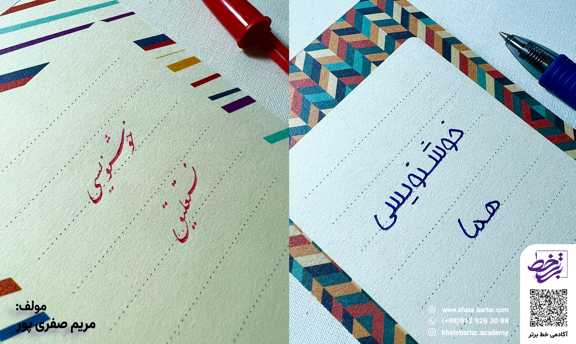 خوشنویسی
نستعلیق
خوشنویسی
هما
مولف:
مریم صفری پور
خط برتر
www.khate-bartar.com
khatebartar.academy
آکادمی خط برتر